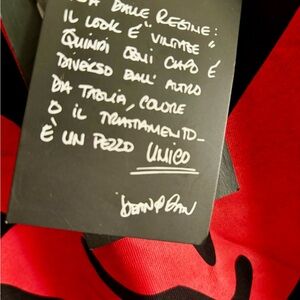 DALLE REGINE:
IL LOOK È "VINTAGE"
QUINDI OGNI CAPO È
DIVERSO DALL'ALTRO
DA TAGLIA, COLORE
O IL TRATTAMENTO_
È UN PEZZO UNICO
DEAN & DAN